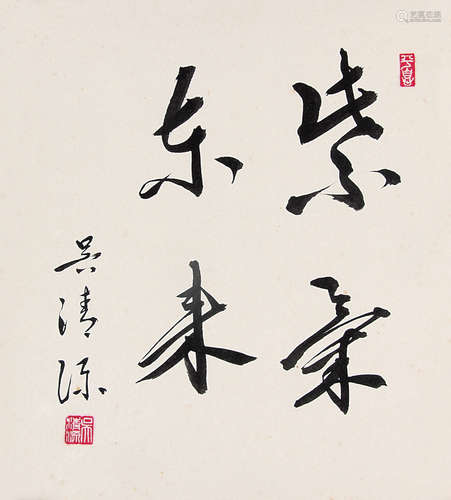 紫氣
东来
吴清源